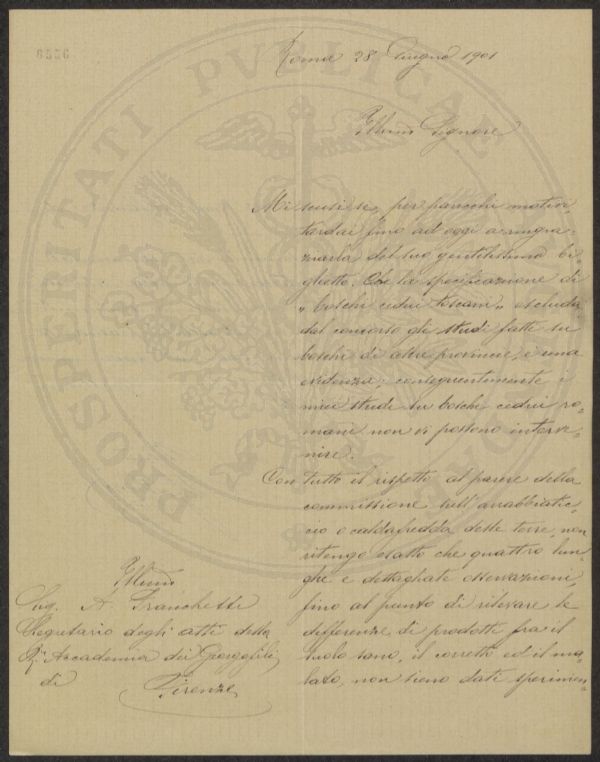 6556
PROSPERITATI PUBLICAE
Roma 28 Giugno 1901
Illmo Signore
Mi scusi se, per parecchi motivi,
tardai fino ad oggi a ringra-
ziarla del suo gentilissimo bi-
glietto. Che la specificazione di
"boschi cedui toscani" escluda
dal concorso gli studi fatti su
boschi di altre provincie, è una
evidenza; conseguentemente i
miei studi su boschi cedui ro-
mani non vi possono interve-
nire.
Con tutto il rispetto al parere della
commissione sull'arrabbiatic-
cio o caldafredda delle terre, non
ritengo esatto che quattro lun-
ghe e dettagliate osservazioni,
fino al punto di rilevare le
differenze di prodotti fra il
suolo sano, il corretto ed il ma-
lato, non sieno dati sperimen-
Illmo
Sig. A. Franchetti
Segretario degli atti della
R.a Accademia dei Georgofili
di Firenze